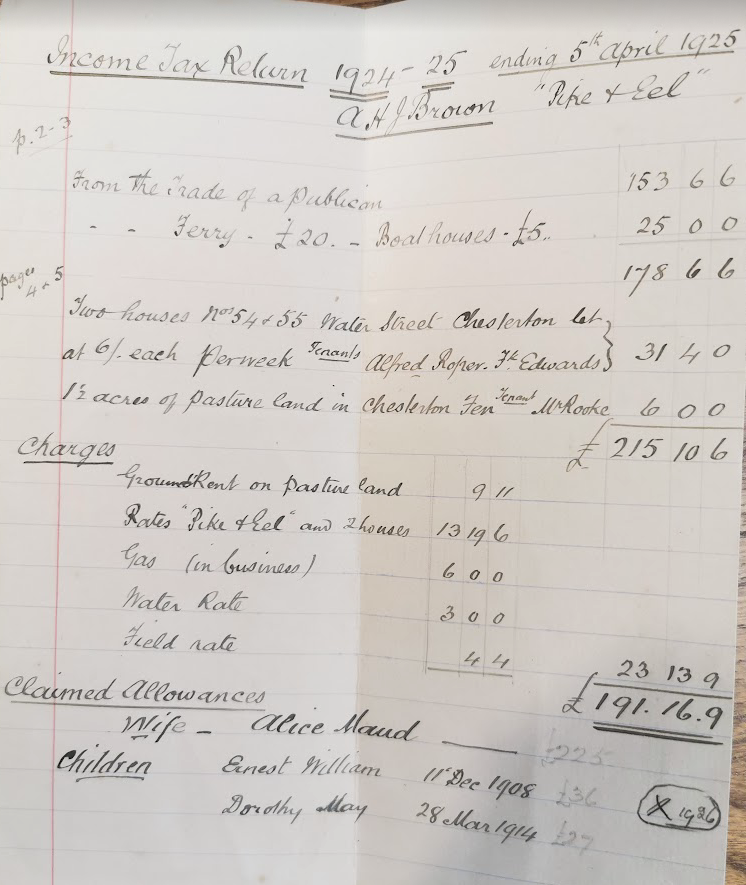 Income Tax Return 1924-25 ending 5th April 1925
A H J Brown "Pike & Eel"
p. 2-3
From the Trade of a Publican 153 6 6
" " Ferry - £20. - Boathouses - £5.. 25 0 0
178 6 6
pages 4 & 5
Two houses Nos 54 & 55 Water Street Chesterton let
at 6/- each per week Tenants Alfred Roper. Fk. Edwards } 31 4 0
1½ acres of pasture land in Chesterton Fen Tenant Mr Rooke 6 0 0
£ 215 10 6
Charges
Ground Rent on pasture land 9 11
Rates "Pike & Eel" and 2 houses 13 19 6
Gas (in business) 6 0 0
Water Rate 3 0 0
Field rate 4 4
23 13 9
£ 191. 16. 9
Claimed Allowances
Wife - Alice Maud —— £225
Children Ernest William 11 Dec 1908 £36
Dorothy May 28 Mar 1914 £27
X 1926